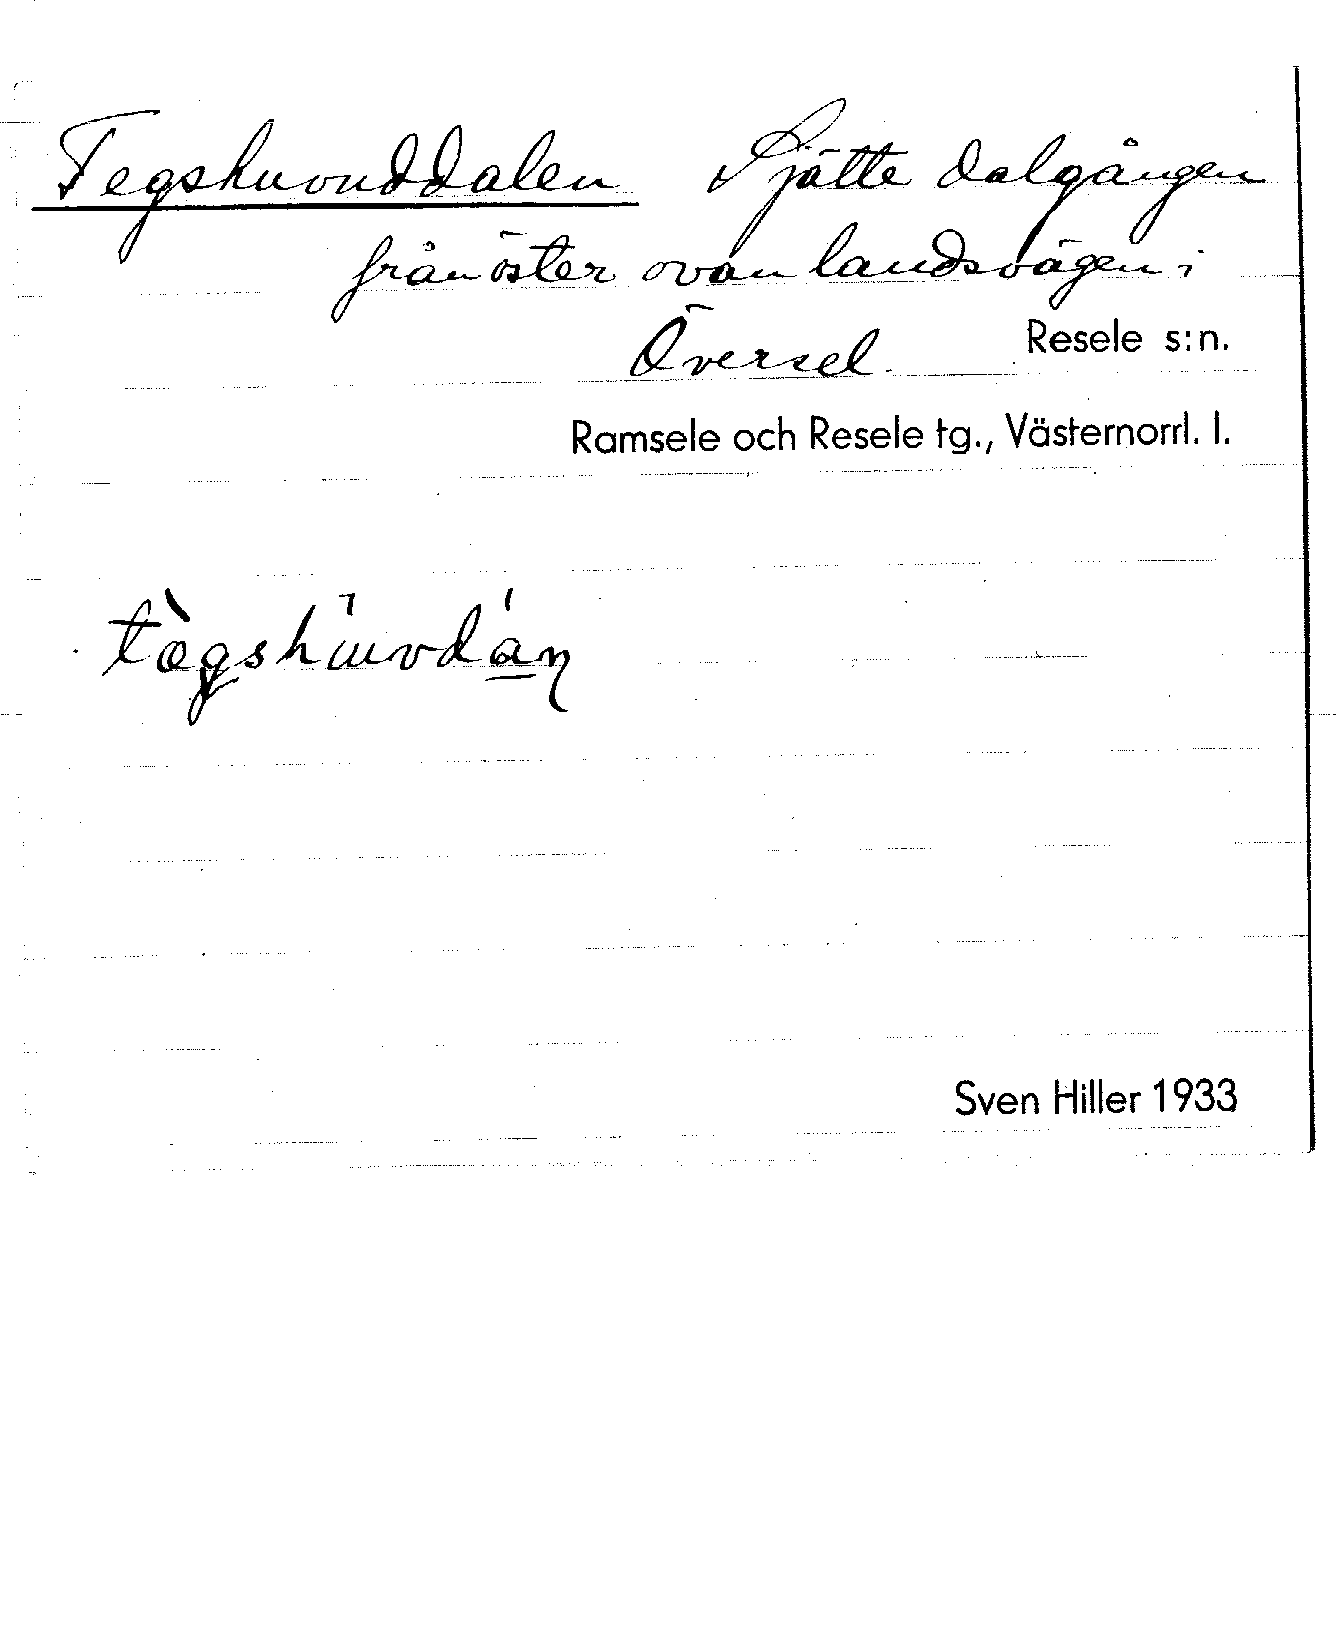 Tegshuvuddalen Sjätte dalgången
från öster ovan landsvägen i
Översel Resele s:n.
Ramsele och Resele tg., Västernorrl. l.
Sven Hiller 1933